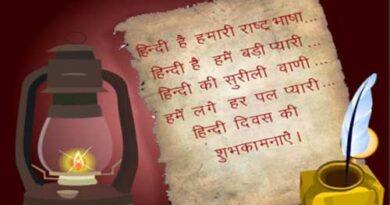 हिन्दी है हमारी राष्ट भाषा...
हिन्दी है हमें बड़ी प्यारी ...
हिन्दी की सुरीली वाणी ...
हमें लगे हर पल प्यारी ...
हिन्दी दिवस की
शुभकामनाएँ ।